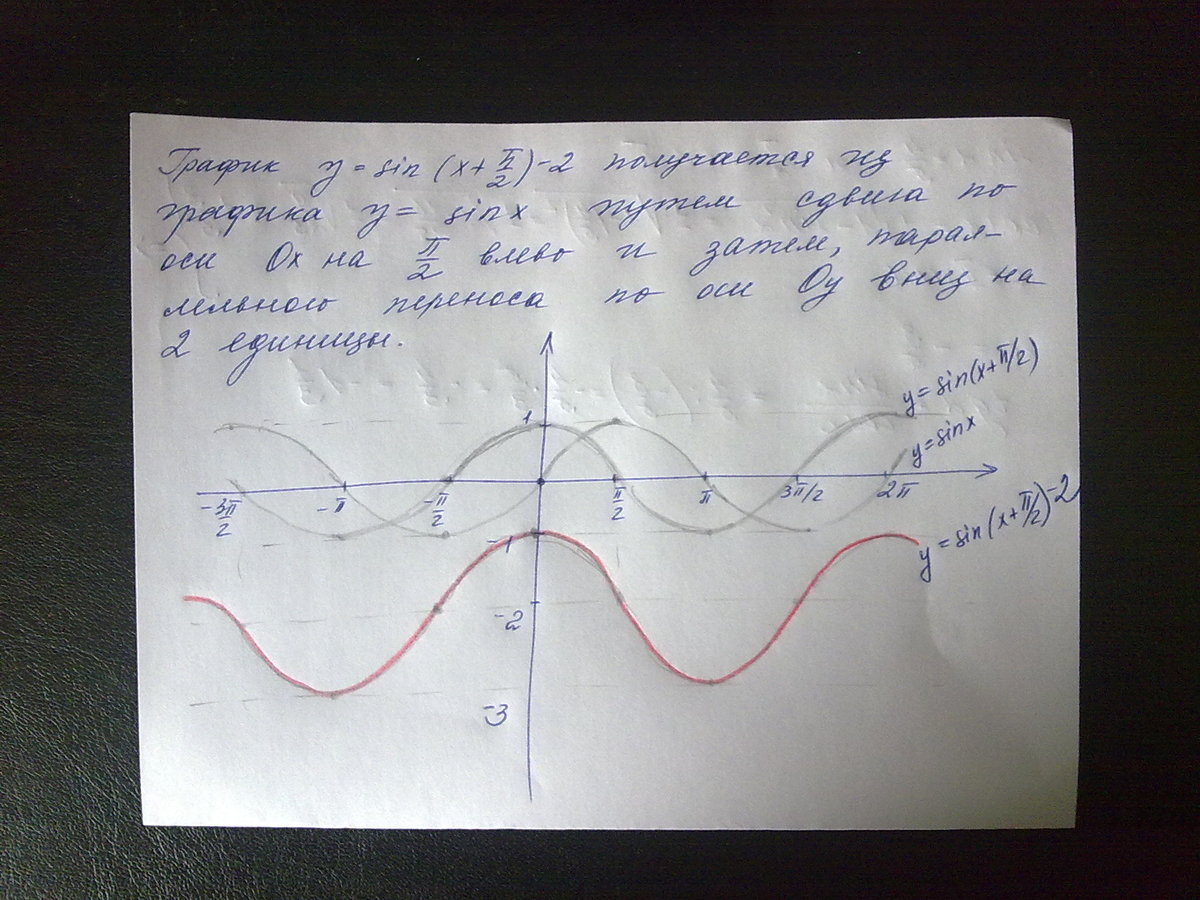 График y = sin (x + π/2) - 2 получается из
графика y = sin x путем сдвига по
оси Ox на π/2 влево и затем, парал-
лельного переноса по оси Oy вниз на
2 единицы.
y = sin(x+π/2)
1
y = sin x
-3π/2 -π -π/2 π/2 π 3π/2 2π
y = sin(x+π/2)-2
-1
-2
-3